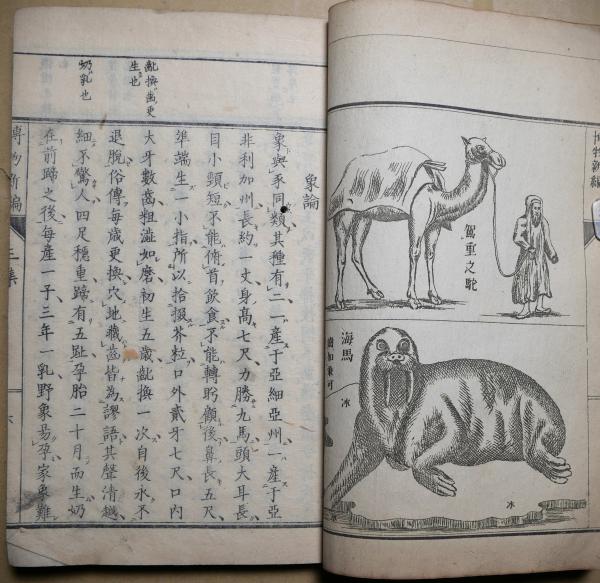 博物新編
駕重之駝
海馬
冰
冰
象論
象與豕同類其種有二一產于亞細亞州一產于亞
非利加州長約一丈身高七尺力勝九馬頭大耳長
目小頸短不能俯首飲食不能轉盻顧後鼻長五尺
準端生一小指所以拾掇芥粒口外貳牙七尺口內
大牙數箇粗澁如磨初生五歲齔換一次自後永不
退脫俗傳每歲更換穴地藏齒皆為謬語其聲清越
細不驚人四足穩重蹄有五趾孕胎二十月而生奶
在前蹄之後每產一子三年一乳野象易孕家象難
齔換齒更
生也
奶乳也
博物新編
三集